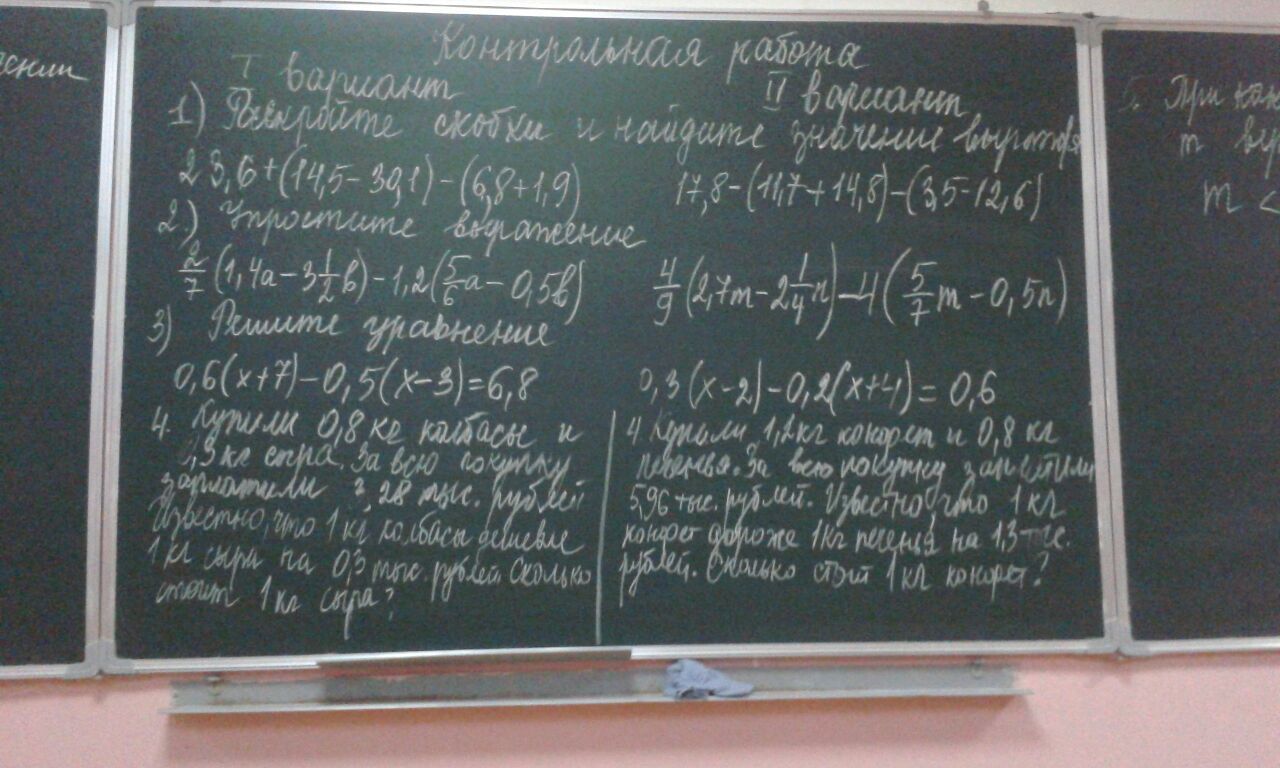 Контрольная работа
I вариант
II вариант
1) Раскройте скобки и найдите значение выражен
23,6+(14,5-30,1)-(6,8+1,9)
17,8-(11,7+14,8)-(3,5-12,6)
2.) Упростите выражение
2/7(1,4a-3 1/2 b)-1,2(5/6 a-0,5b)
4/9(2,7m-2 1/4 n)-4(5/7 m-0,5n)
3) Решите уравнение
0,6(x+7)-0,5(x-3)=6,8
0,3(x-2)-0,2(x+4)=0,6
4. Купили 0,8 кг колбасы и
0,3 кг сыра. За всю покупку
заплатили 3,28 тыс. рублей
Известно, что 1 кг колбасы дешевле
1 кг сыра на 0,3 тыс. рублей. Сколько
стоит 1 кг сыра?
4. Купили 1,2 кг конфет и 0,8 кг
печенья. За всю покупку заплатили
5,96 тыс. рублей. Известно, что 1 кг
конфет дороже 1 кг печенья на 1,3 тыс.
рублей. Сколько стоит 1 кг конфет?
При
m
m <